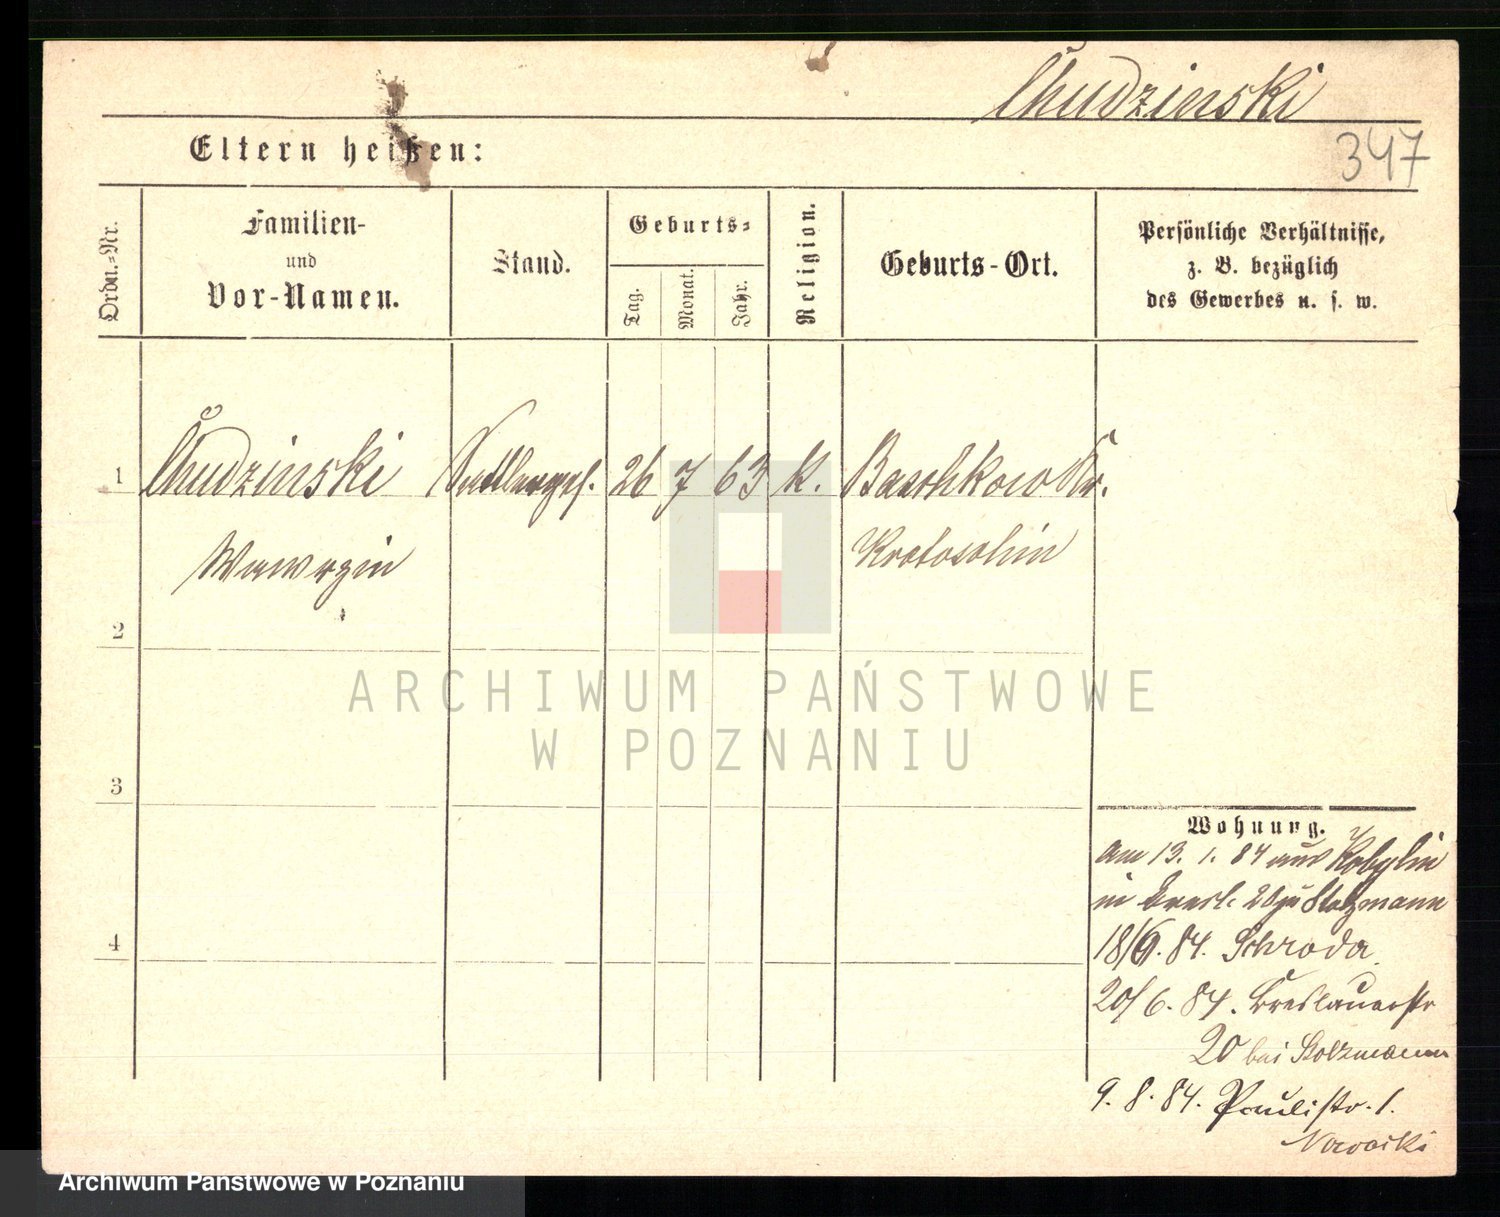 Chudzinski
347
Eltern heißen:
Ordn.=Nr.
Familien-
und
Vor-Namen.
Stand.
Geburts=
Tag.
Monat.
Jahr.
Religion.
Geburts-Ort.
Persönliche Verhältnisse,
z. B. bezüglich
des Gewerbes u. s. w.
1 Chudzinski Sattlerges. 26 7 63 k. Baschkow Kr.
Wawrzin Krotoschin
2
3
4
ARCHIWUM PAŃSTWOWE
W POZNANIU
Wohnung.
Am 13. 1. 84 aus Kobylin
in Bresl. 20 Stolzmann
18/6. 84. Schroda
20/6. 84. Breslauerstr
20 bei Stolzmann
9. 8. 84. Paulistr. 1.
Nowacki
Archiwum Państwowe w Poznaniu